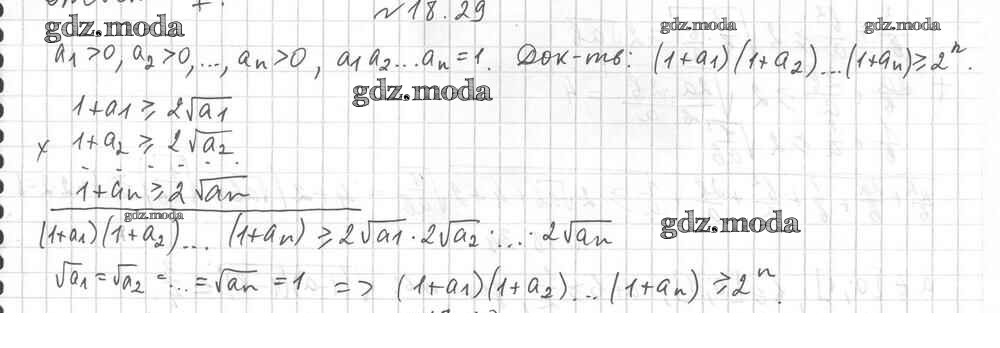 №18.29
gdz.moda gdz.moda gdz.moda
a₁>0, a₂>0, ..., aₙ>0, a₁a₂...aₙ=1. Док-ть: (1+a₁)(1+a₂)...(1+aₙ)≥2ⁿ.
gdz.moda
1+a₁ ≥ 2√a₁
× 1+a₂ ≥ 2√a₂
1+aₙ ≥ 2√aₙ
gdz.moda gdz.moda
(1+a₁)(1+a₂)...(1+aₙ) ≥ 2√a₁ · 2√a₂ · ... · 2√aₙ
√a₁ = √a₂ = ... = √aₙ = 1 => (1+a₁)(1+a₂)...(1+aₙ) ≥ 2ⁿ.